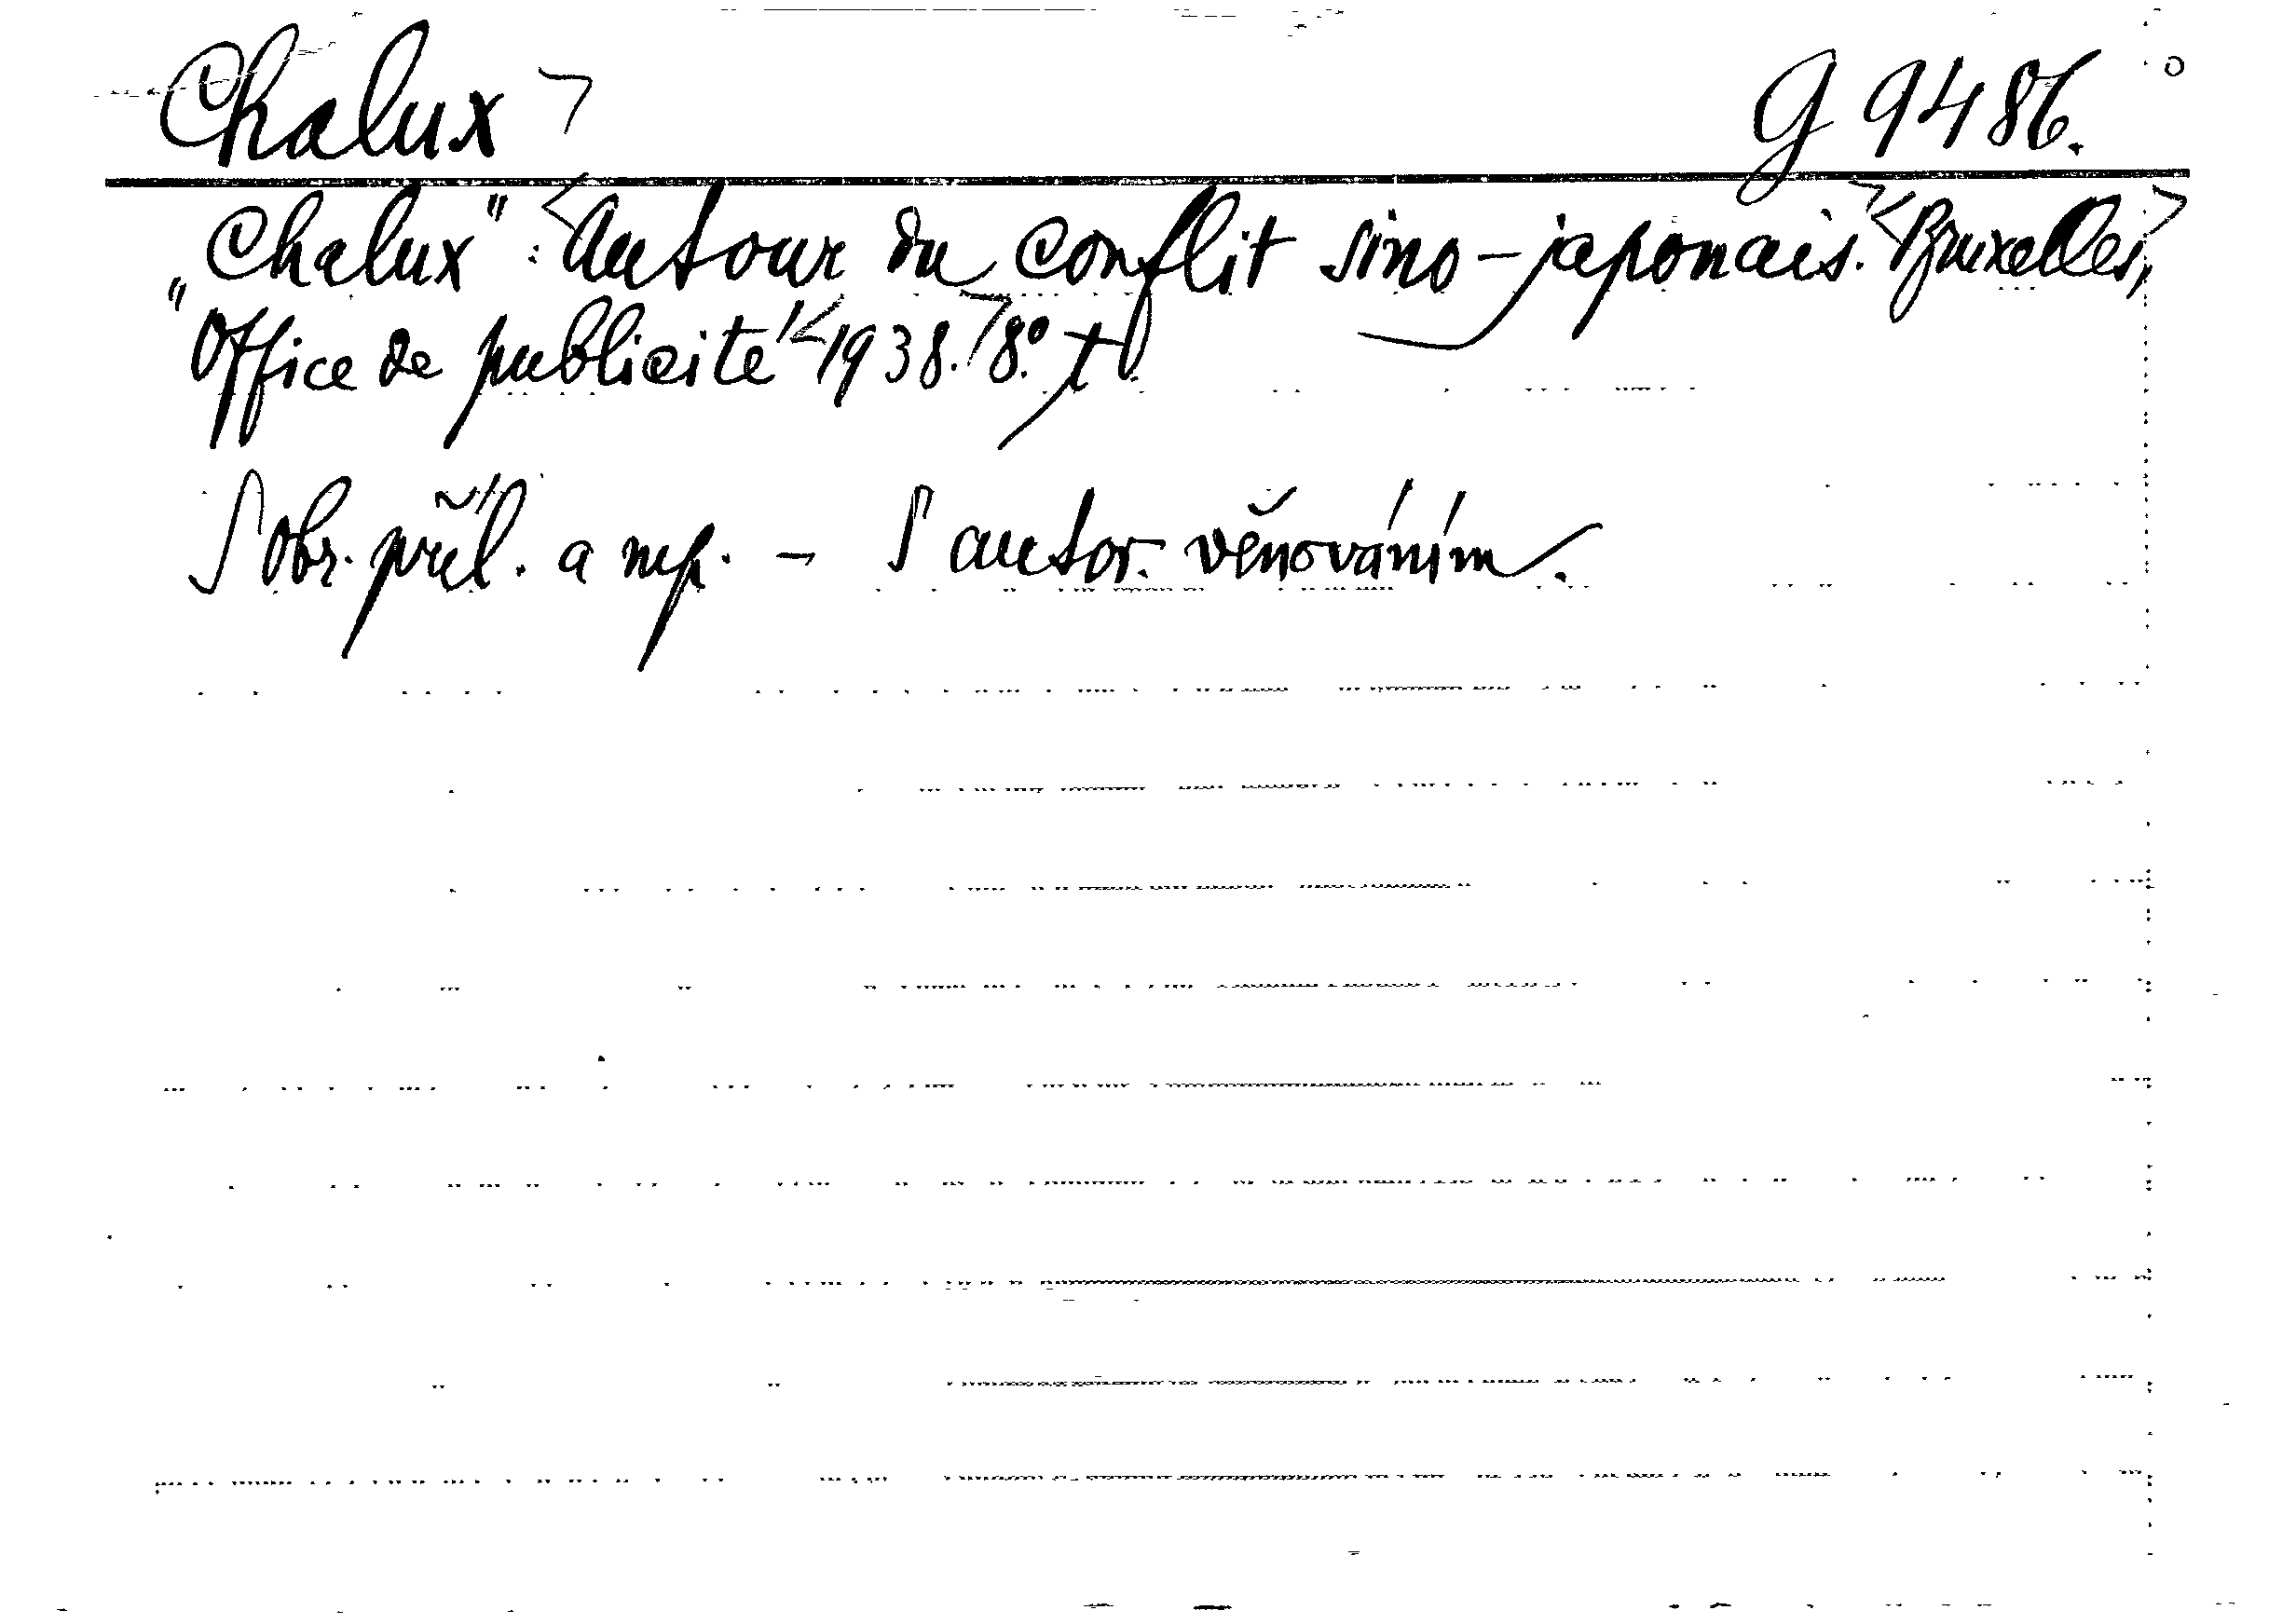 Chalux G 9486.
„Chalux": Autour du conflit sino-japonais. Bruxelles,
"Office de publicité" 1938. 8°.
S obr. příl. a mp. - S autor. věnováním.